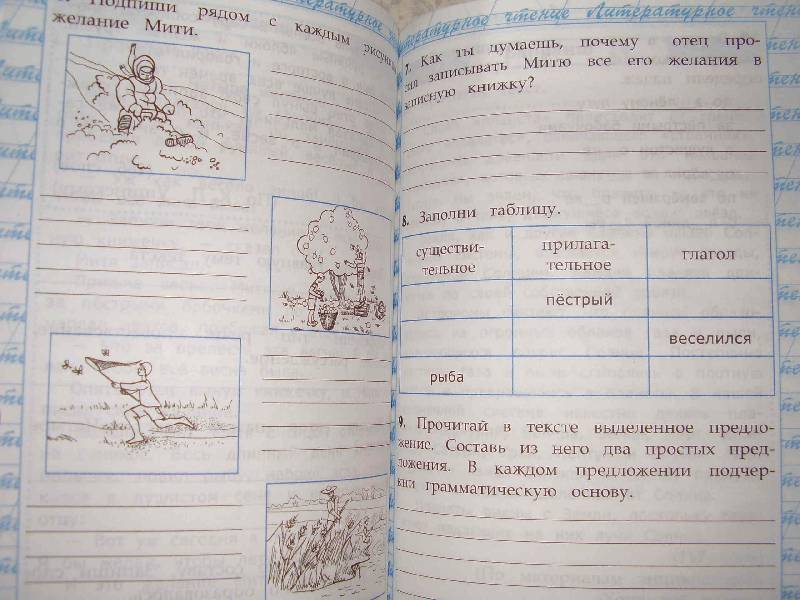 Подпиши рядом с каждым
желание Мити.
Литературное чтение Литературное чтение
7. Как ты думаешь, почему отец про-
сил записывать Митю все его желания в
записную книжку?
8. Заполни таблицу.
существи-
тельное
прилага-
тельное
глагол
пёстрый
веселился
рыба
9. Прочитай в тексте выделенное предло-
жение. Составь из него два простых пред-
ложения. В каждом предложении подчер-
кни грамматическую основу.